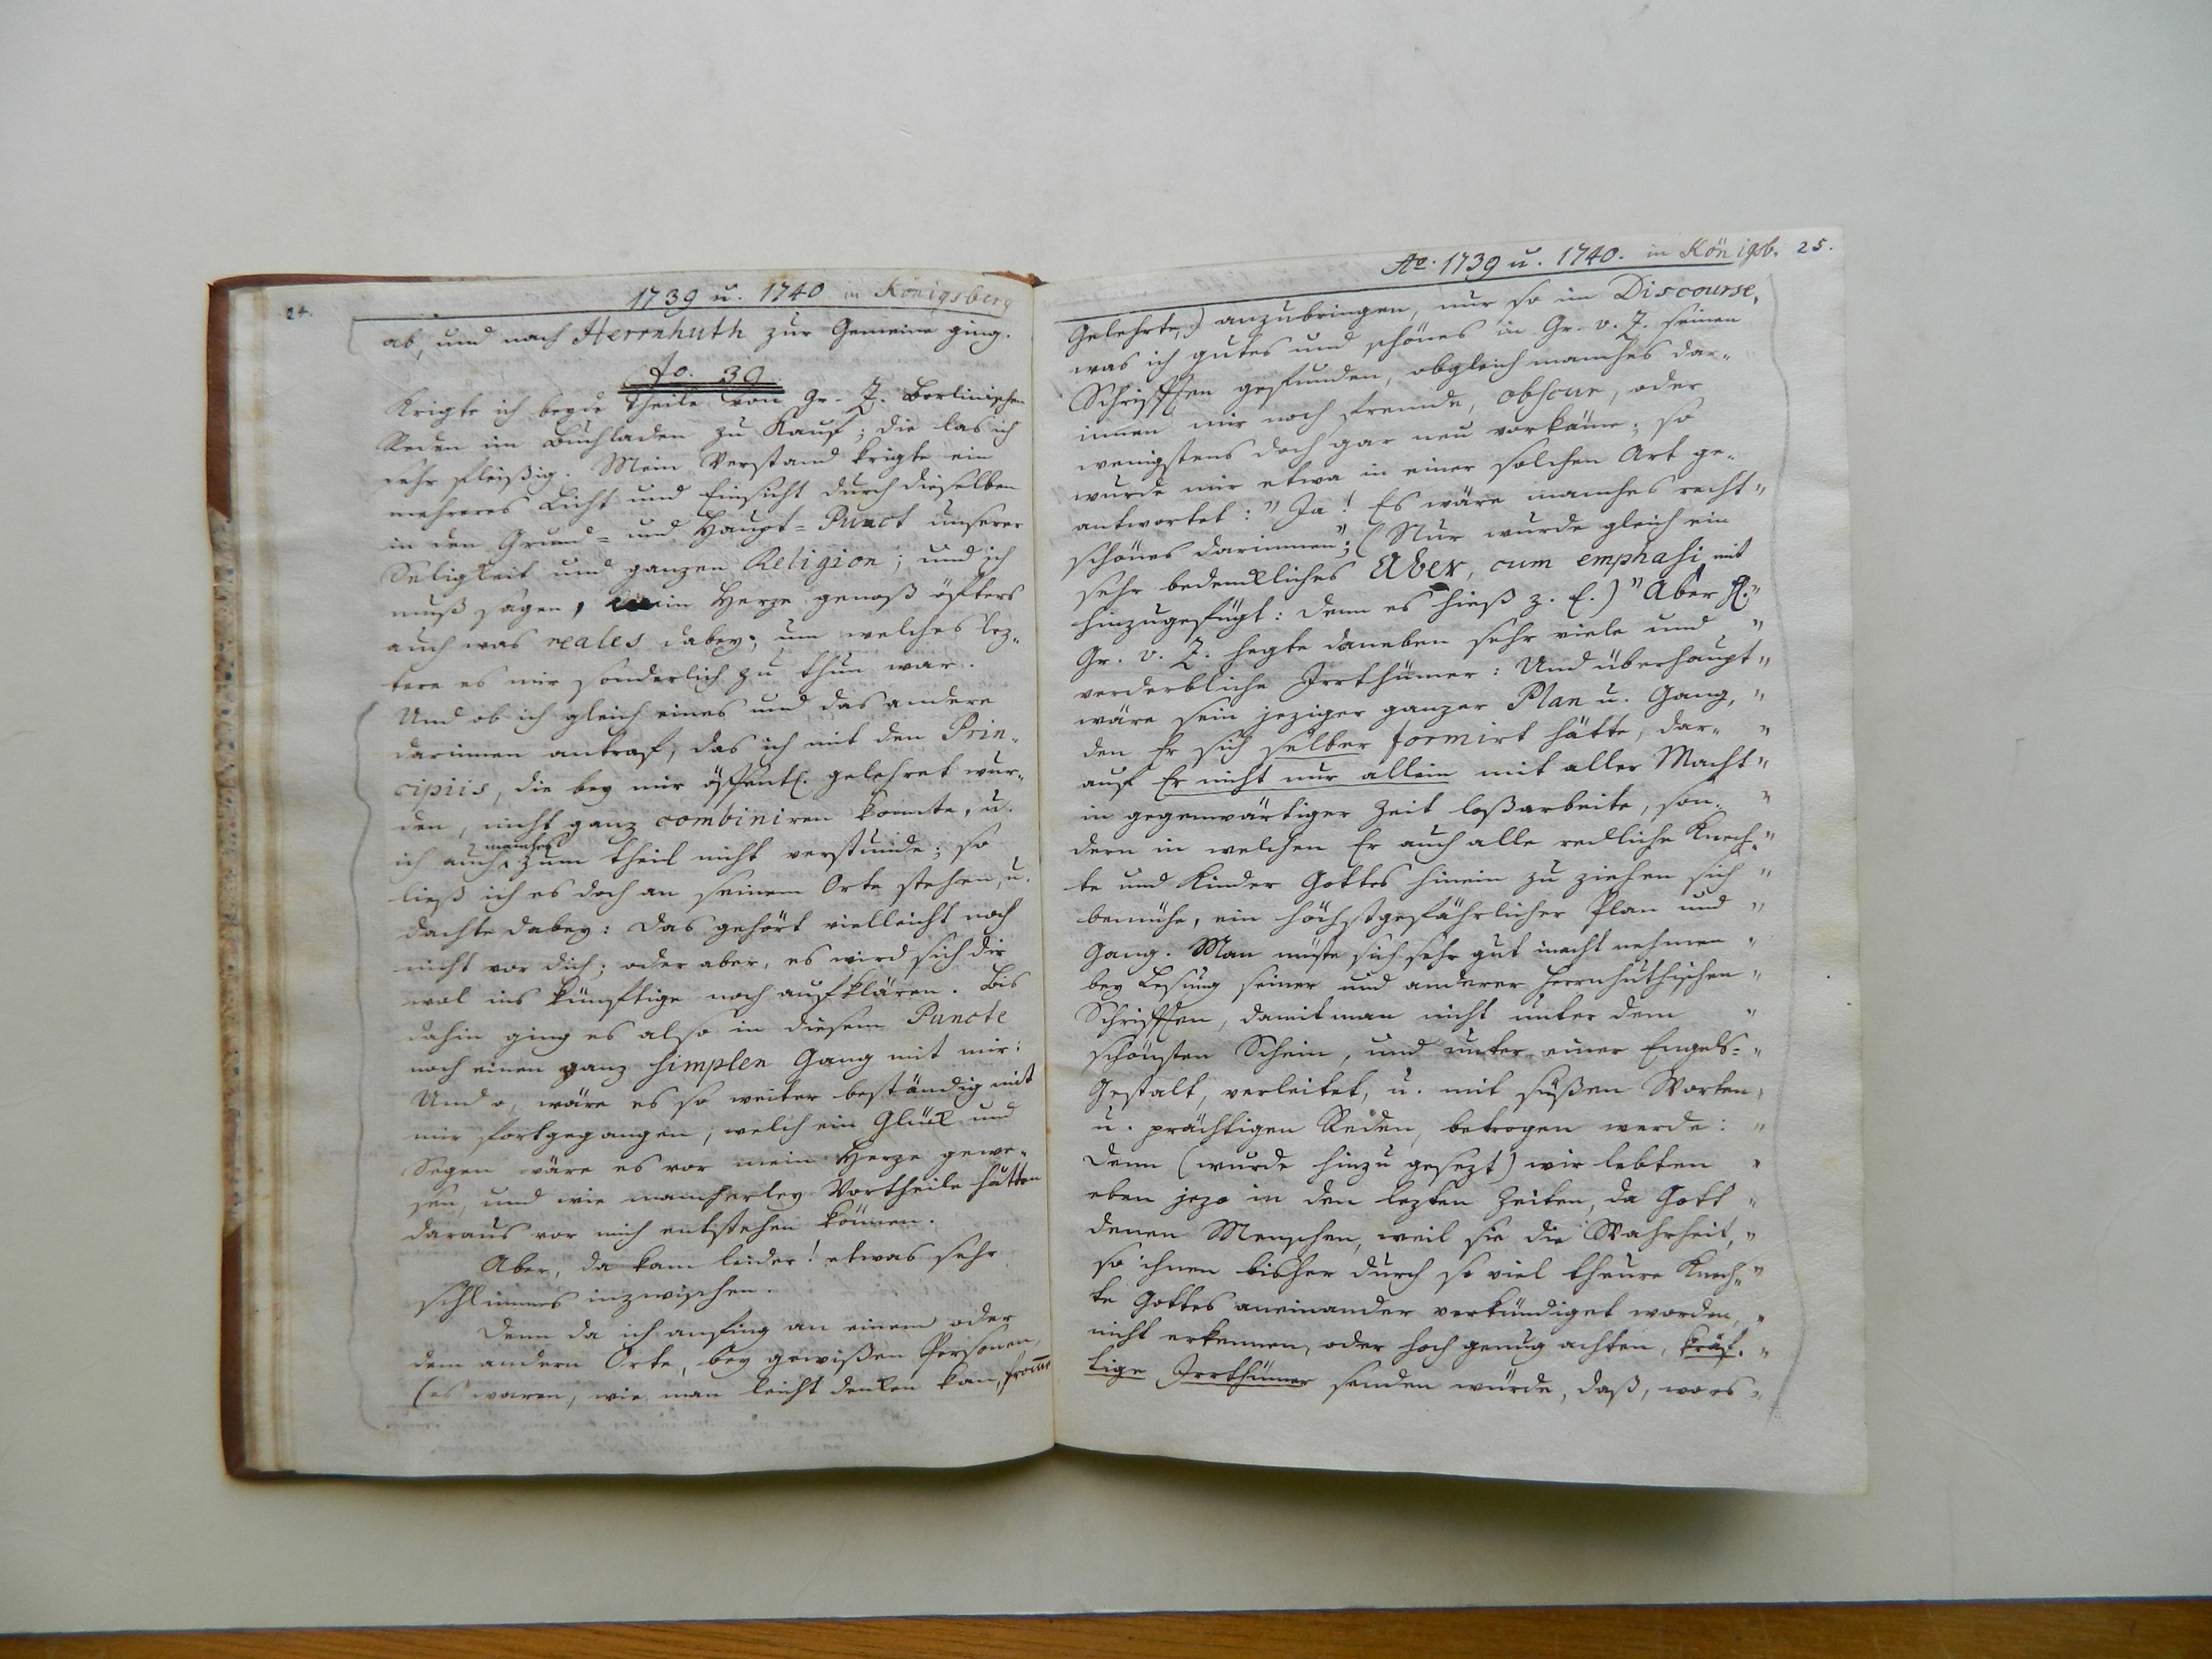 24.
1739 u. 1740 in Königsberg
ab, und nach Herrnhuth zur Gemeine ging.
Ao. 39.
Krigte ich beyde Theile von Gr. Z. Berlinischen
Reden im Buchladen zu Kauf; die las ich
sehr fleißig. Mein Verstand krigte ein
mehreres Licht und Einsicht durch dieselben
in den Grund= und Haupt=Punct unserer
Seligkeit und ganzen Religion; und ich
muß sagen, mein Herze genoß öfters
auch was reales dabey; um welches lez„
tere es mir sonderlich zu thun war.
Und ob ich gleich eines und das andere
darinnen antraf, das ich mit den Prin„
cipiis, die bey mir öffentl. gelehret wur„
den, nicht ganz combiniren konnte, u.
manches
ich auch zum theil nicht verstunde; so
ließ ich es doch an seinem Orte stehen, u.
dachte dabey: Das gehört vielleicht noch
nicht vor dich; oder aber, es wird sich dir
wol ins künftige noch aufklären. Bis
dahin ging es also in diesem Puncte
noch einen ganz simplen Gang mit mir:
Und o, wäre es so weiter beständig mit
mir fortgegangen, welch ein Glük und
Segen wäre es vor mein Herze gewe„
sen, und wie mancherley Vortheile hätten
daraus vor mich entstehen können.
Aber, da kam leider! etwas sehr
schlimmes inzwischen.
Denn da ich anfing an einem oder
dem andern Orte, bey gewißen Personen,
(es waren, wie man leicht denken kan, from̅e
Ao. 1739 u. 1740. in Königsb. 25.
Gelehrte,) anzubringen, nur so im Discourse,
was ich gutes und schönes in Gr. v. Z. seinen
Schrifften gefunden, obgleich manches dar„
innen mir noch fremde, obscur, oder
wenigstens doch gar neu vorkäme; so
wurde mir etwa in einer solchen Art ge„
antwortet: "Ja! Es wäre manches recht "
schönes darinnen"; (Nur wurde gleich ein
sehr bedenkliches Aber, cum emphasi mit
hinzugefügt: denn es hieß z. E.) "Aber H. "
Gr. v. Z. hegte daneben sehr viele und "
verderbliche Irrthümer: Und überhaupt "
wäre sein jeziger ganzer Plan u. Gang, "
den Er sich selber formirt hätte, dar„ "
auf Er nicht nur allein mit aller Macht "
in gegenwärtiger Zeit loßarbeite, son„ "
dern in welchen Er auch alle redliche Knech„ "
te und Kinder Gottes hinein zu ziehen sich "
bemühe, ein höchstgefährlicher Plan und "
Gang. Man müste sich sehr gut inacht nehmen "
bey Lesung seiner und anderer Herrnhuthischen "
Schrifften, damit man nicht unter dem "
schönsten Schein, und unter einer Engels= "
Gestalt, verleitet, u. mit süßen Worten "
u. prächtigen Reden, betrogen werde: "
Denn (wurde hinzu gesezt) wir lebten "
eben jezo in den lezten Zeiten, da Gott "
denen Menschen, weil sie die Wahrheit, "
so ihnen bisher durch so viel theure Knech„ "
te Gottes aneinander verkündiget worden, "
nicht erkennen, oder hoch genug achten, kräf„ "
tige Irrthümer senden würde, daß, wo es "